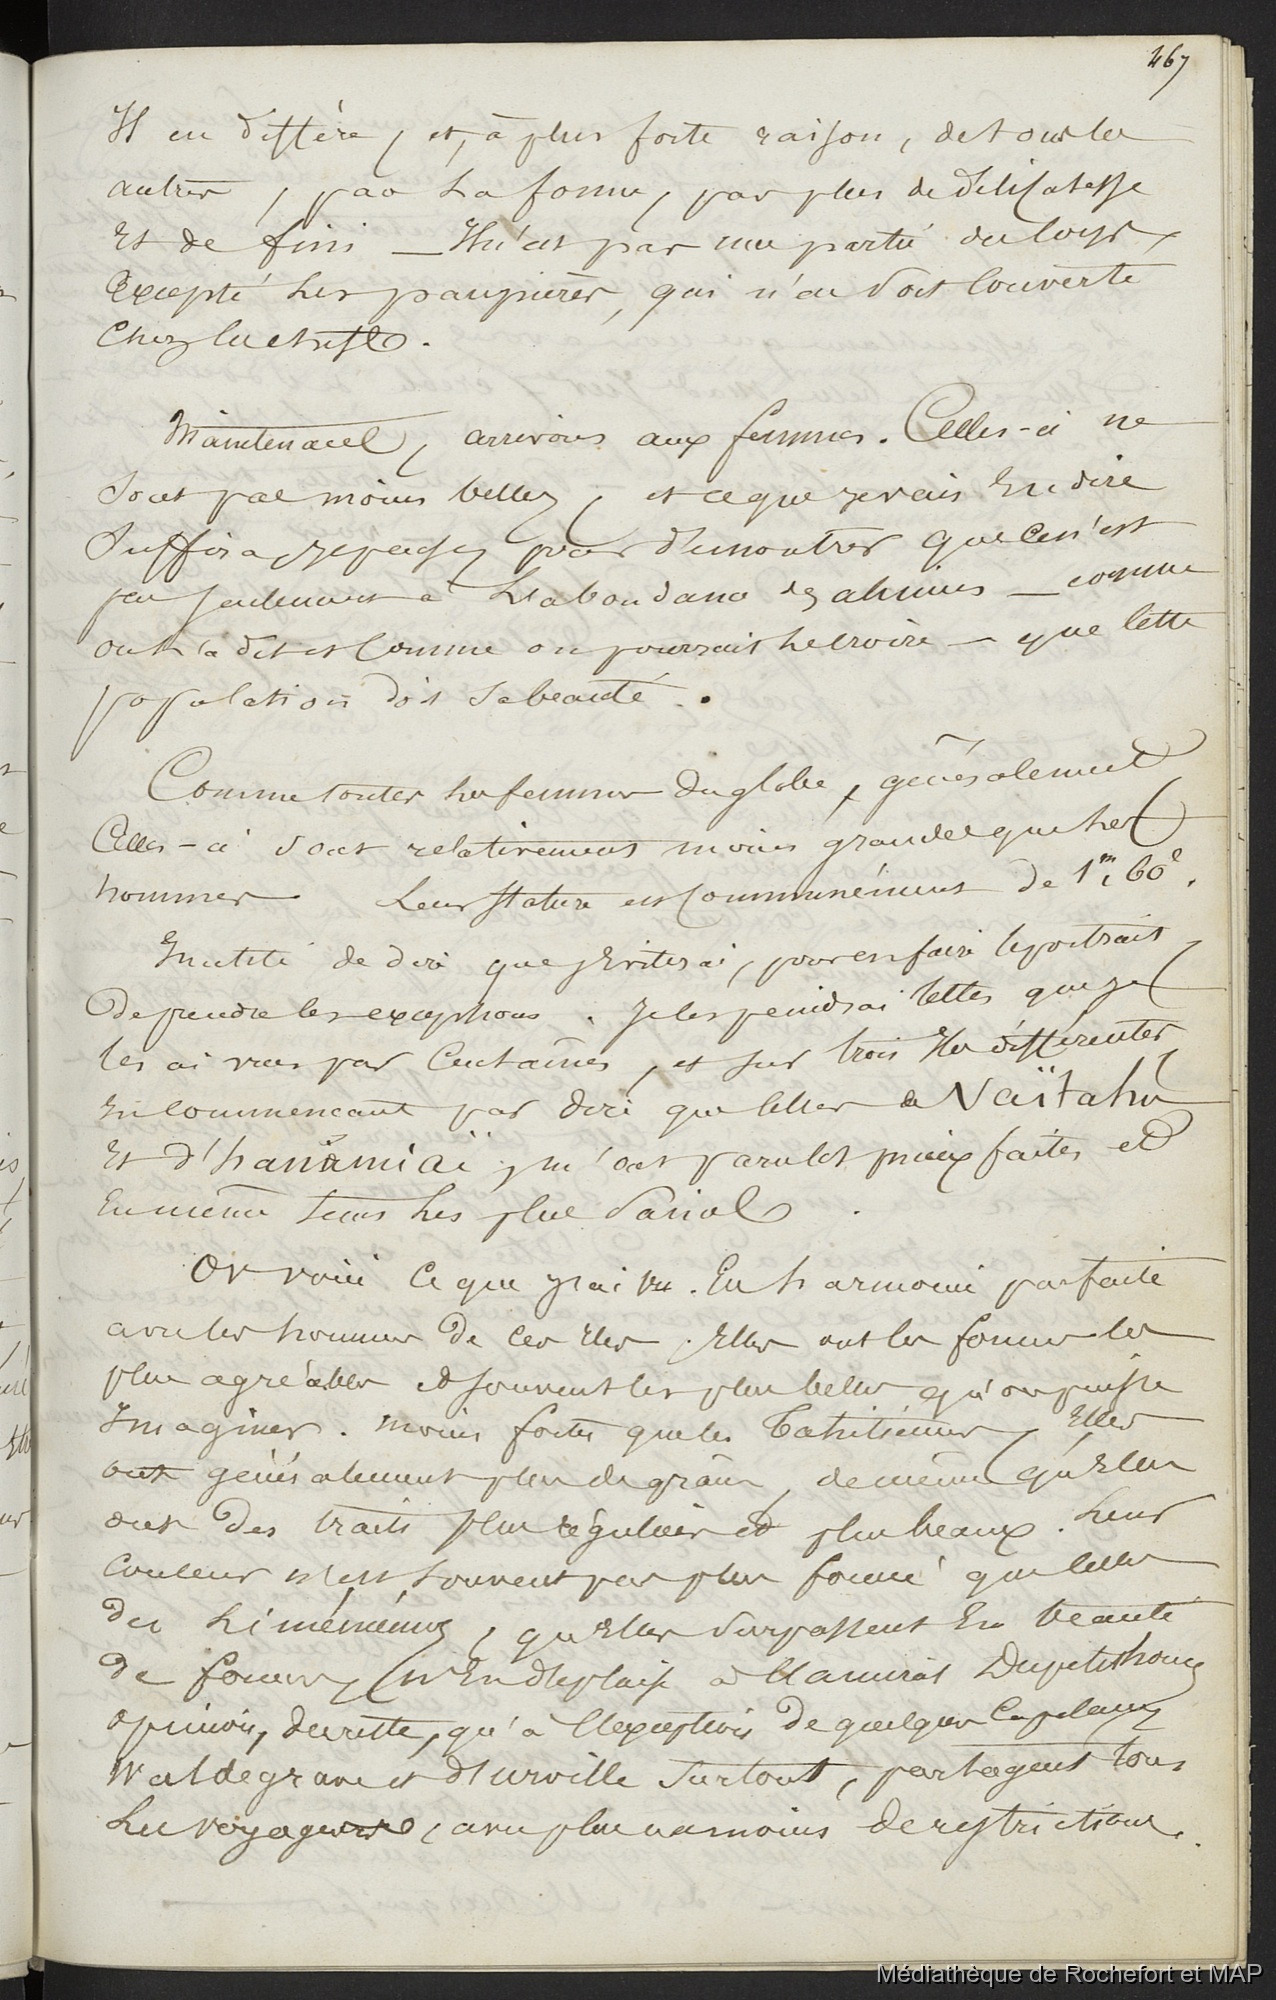 467
Il en diffère, et, à plus forte raison, de tous les
autres, par la forme, par plus de délicatesse
Et de fini — Il n'est pas une partie du corps,
Excepté les paupières, qui n'en soit couverte
Chez les chefs.
Maintenant, arrivons aux femmes. Celles-ci ne
sont pas moins belles, et ce que je vais En dire
Suffira, je pense, pour démontrer que ce n'est
pas seulement à L'abondance des alimens — comme
on l'a dit et comme on pourrait le croire — que cette
population doit sa beauté.
Comme toutes les femmes du globe, généralement
Celles-ci sont relativement moins grandes que les
hommes. Leur stature est communément de 1m, 60c.
Inutile de dire que j'Eviterai, pour en faire le portrait
De prendre les exceptions. Je les peindrai telles que je
les ai vues par Centaines, et sur trois Iles différentes
En commençant par dire que celles de Vaïtahu
Et d'hanamiaï, m'ont paru les mieux faites et
En même tems les plus
Or voici ce que j'ai vu. En harmonie parfaite
avec les hommes de ces Iles. Elles ont les formes les
plus agréables et souvent les plus belles qu'on puisse
Imaginer. Moins fortes que les Tahitiennes, Elles
ont généralement plus de grâce, de même qu'Elles
ont des traits plus réguliers et plus beaux. Leur
Couleur n'est souvent pas plus foncée que celle
des Liméniennes, qu'Elles surpassent En beauté
De formes, (n'En déplaise à l'amiral Dupetit thouars
opinion, du reste, qu'à l'exception de quelques Capitaines
Waldegrave et d'Urville surtout, partagent tous
Les voyageurs, avec plus ou moins de restrictions.
Médiathèque de Rochefort et MAP